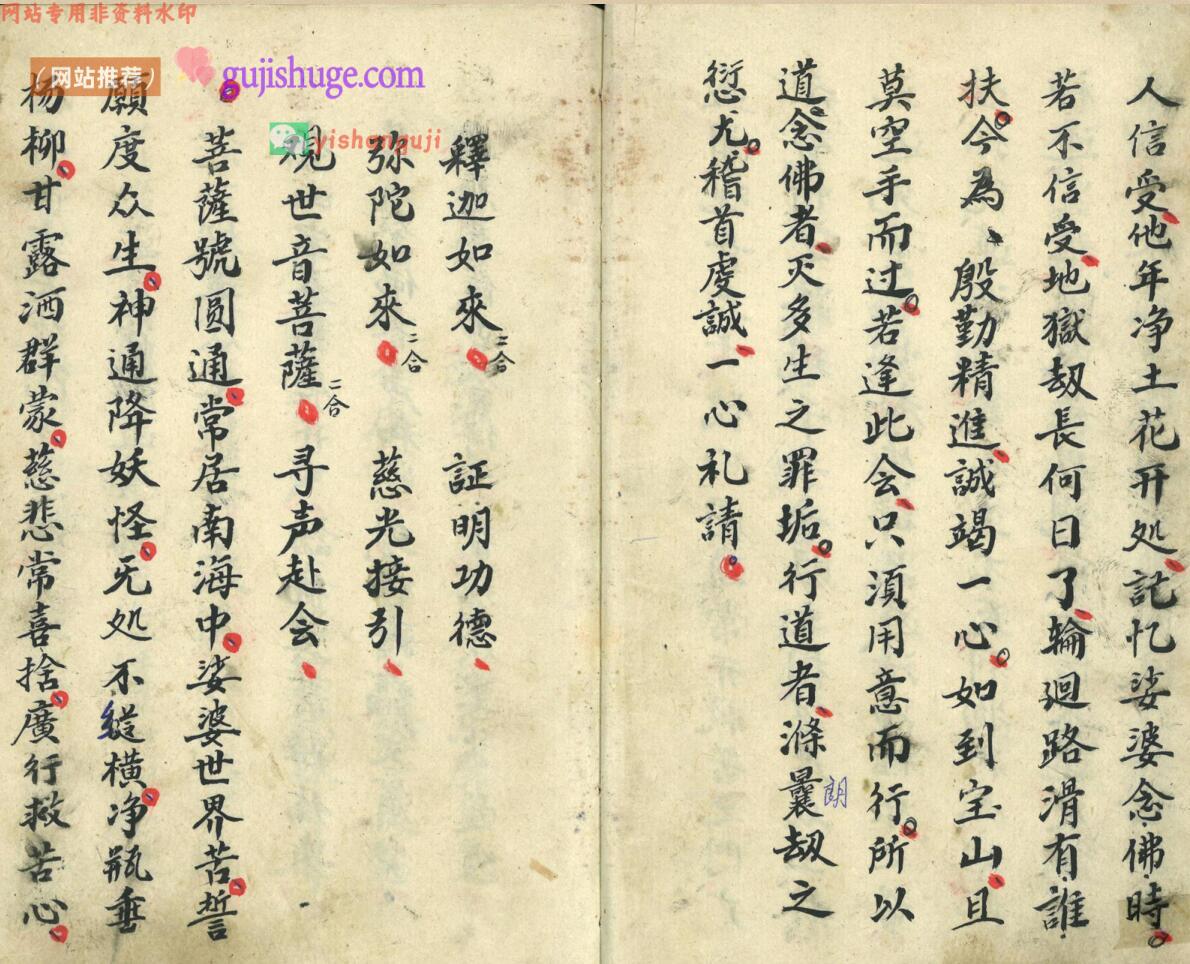 网站专用非资料水印
（网站推荐）
gujishuge.com
yishanguji
人信受他年净土花开处記忆娑婆念佛時
若不信受地獄刧長何日了輪廻路滑有誰
扶今為、殷勤精進誠竭一心如到宝山且
莫空手而过若逢此会只須用意而行所以
道念佛者灭多生之罪垢行道者滌曩刧之
朗
愆尤稽首虔誠一心礼請
釋迦如來二合 証明功德
弥陀如來二合 慈光接引
观世音菩薩二合 寻声赴会
菩薩號圆通常居南海中娑婆世界苦誓
願度众生神通降妖怪无処不縱橫净瓶垂
杨柳甘露洒群蒙慈悲常喜捨廣行救苦心